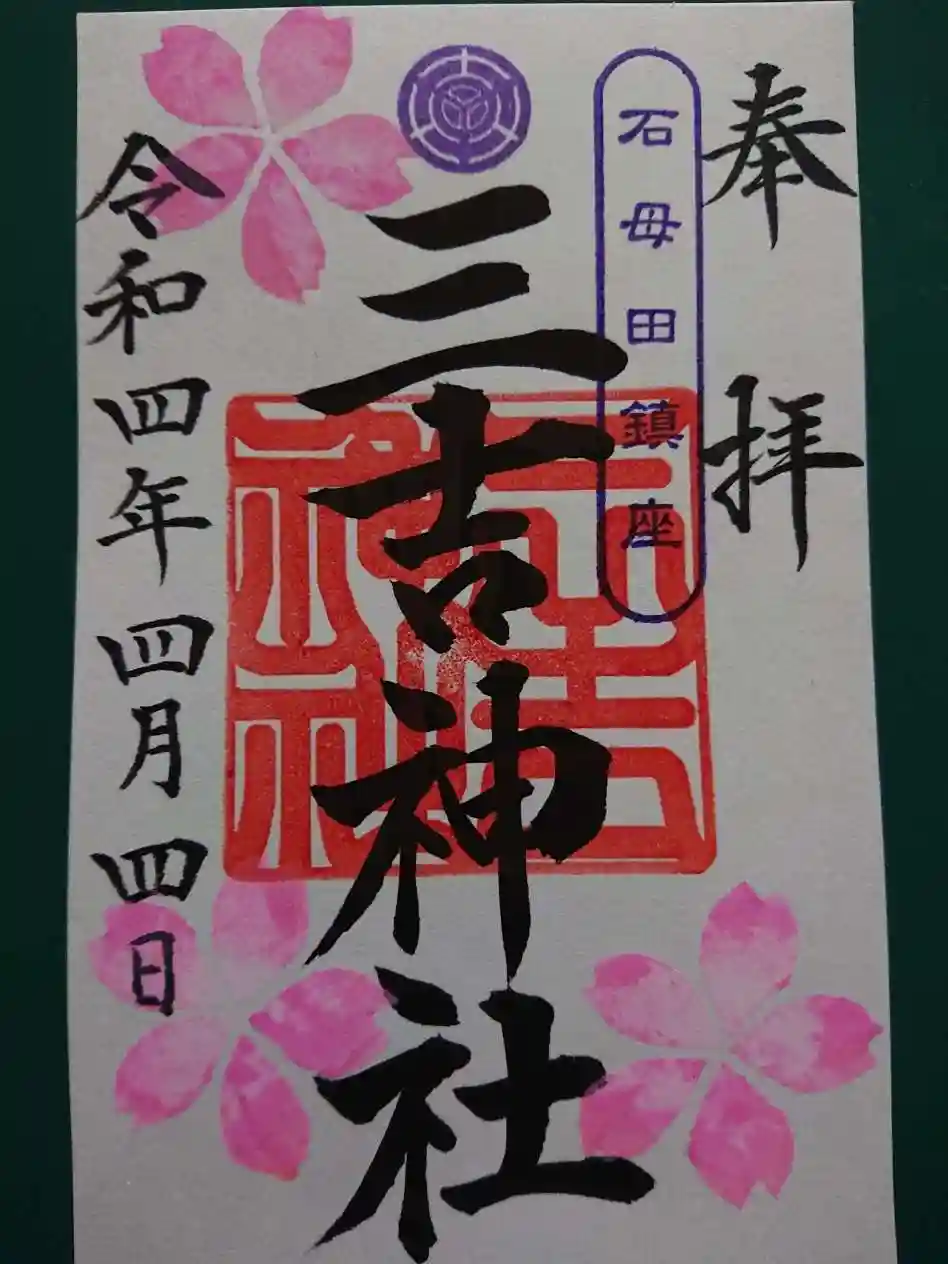 奉拝
石母田鎮座
三吉神社
三吉神社
令和四年四月四日